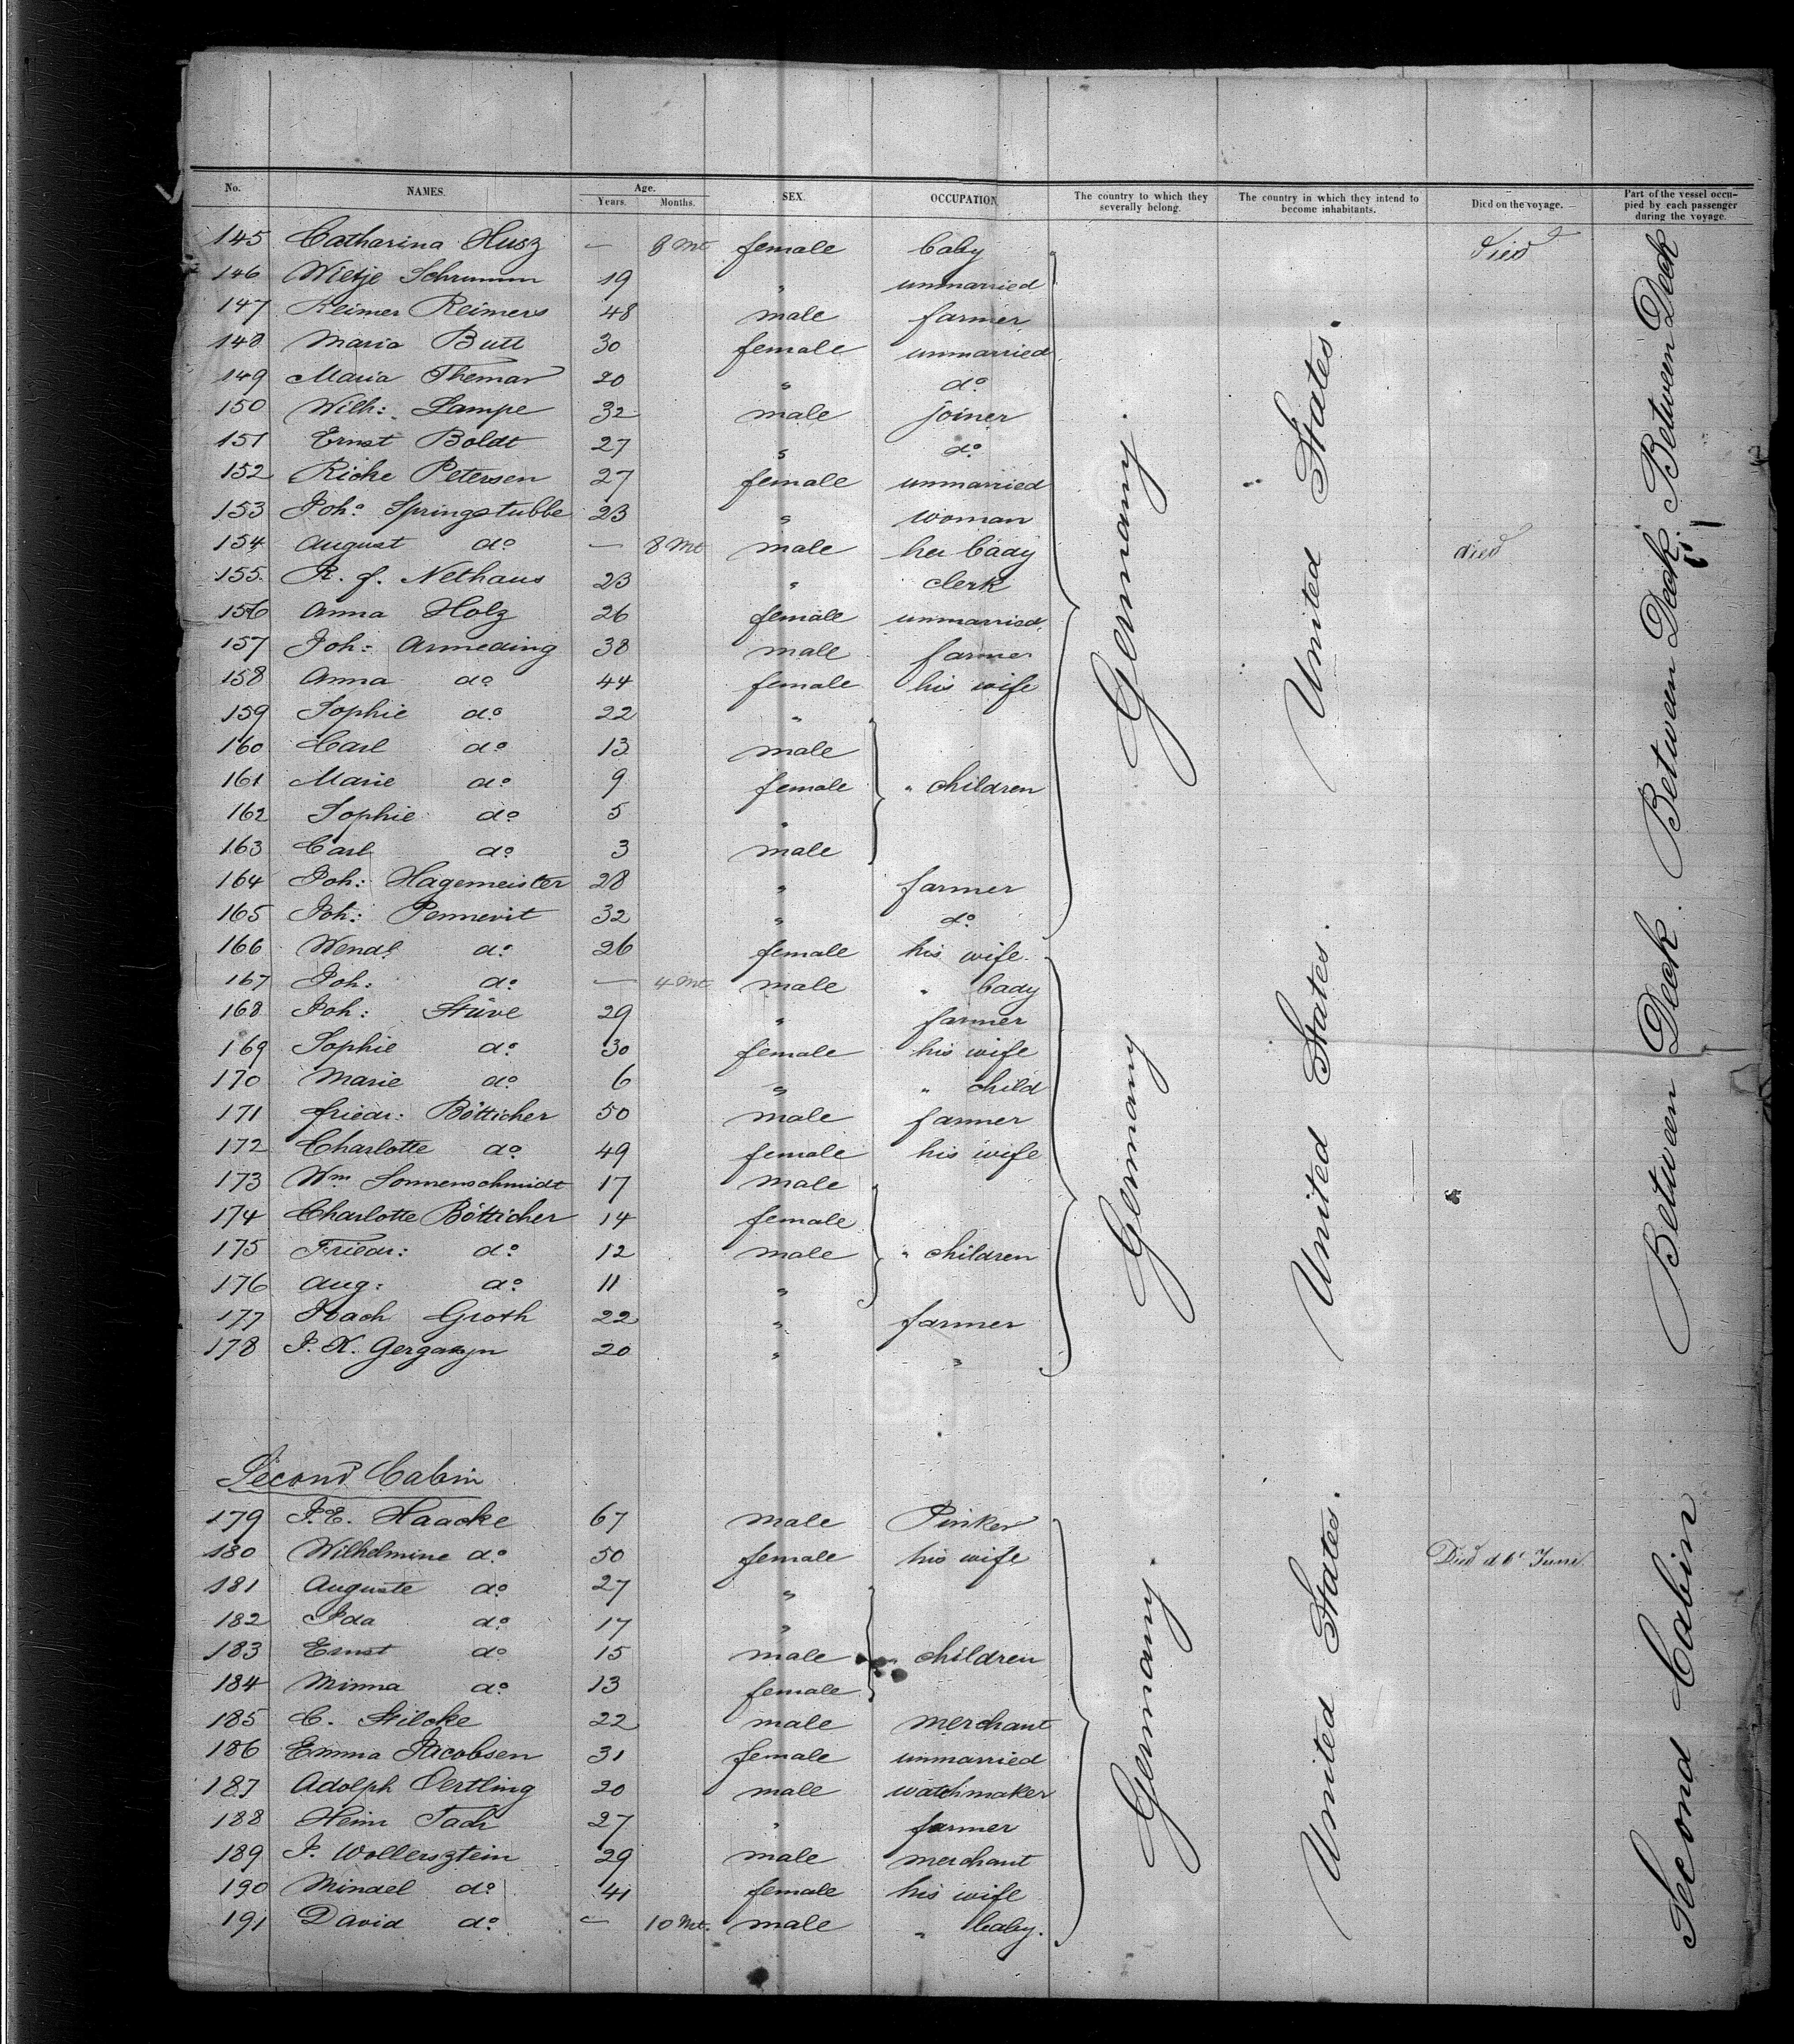 No. NAMES. Age. Years. Months. SEX. OCCUPATION The country to which they severally belong. The country in which they intend to become inhabitants. Died on the voyage. Part of the vessel occupied by each passenger during the voyage.
145 Catharina Husz — 8 Mt. female baby died
146 Wiebje Schrumm 19 " unmarried
147 Reimer Reimers 48 male farmer
148 Maria Butt 30 female unmarried
149 Maria Themar 20 " do
150 Wilh: Lampe 32 male joiner
151 Ernst Boldt 27 " do
152 Ricke Petersen 27 female unmarried
153 Joh: Springstubbe 23 " woman
154 August do — 8 Mt male her bady died
155. R. J. Nethaus 23 " clerk
156 Anna Holz 26 female unmarried
157 Joh: Armeding 38 male farmer
158 Anna do 44 female his wife
159 Sophie do 22 "
160 Carl do 13 male
161 Marie do 9 female " children
162 Sophie do 5 "
163 Carl do 3 male
164 Joh: Hagemeister 28 " farmer
165 Joh: Pennevit 32 " do
166 Wend: do 26 female his wife
167 Joh: do — 4 Mt. male " bady
168 Joh: Stüve 29 " farmer
169 Sophie do 30 female his wife
170 Marie do 6 " " child
171 Friedr: Bötticher 50 male farmer
172 Charlotte do 49 female his wife
173 Wm Sonnenschmidt 17 male
174 Charlotte Bötticher 14 female
175 Friedr: do 12 male " children
176 Aug: do 11 "
177 Joach Groth 22 " farmer
178 J. K. 20 " "
Germany. United States. Between Deck Between Deck
Germany United States. Between Deck. Between Deck
Second Cabin
179 J. E. Haacke 67 male Pinker
180 Wilhelmine do 50 female his wife Died d 6t Juni
181 Auguste do 27 "
182 Ida do 17 "
183 Ernst do 15 male " children
184 Minna do 13 female
185 C. Stilcke 22 male merchant
186 Emma Jacobsen 31 female unmarried
187 Adolph Oertling 20 male watchmaker
188 Heinr Tadr 27 " farmer
189 J. Wollersztein 29 male merchant
190 Mindel do 41 female his wife
191 David do — 10 Mt. male " baby.
Germany. United States. Second Cabin